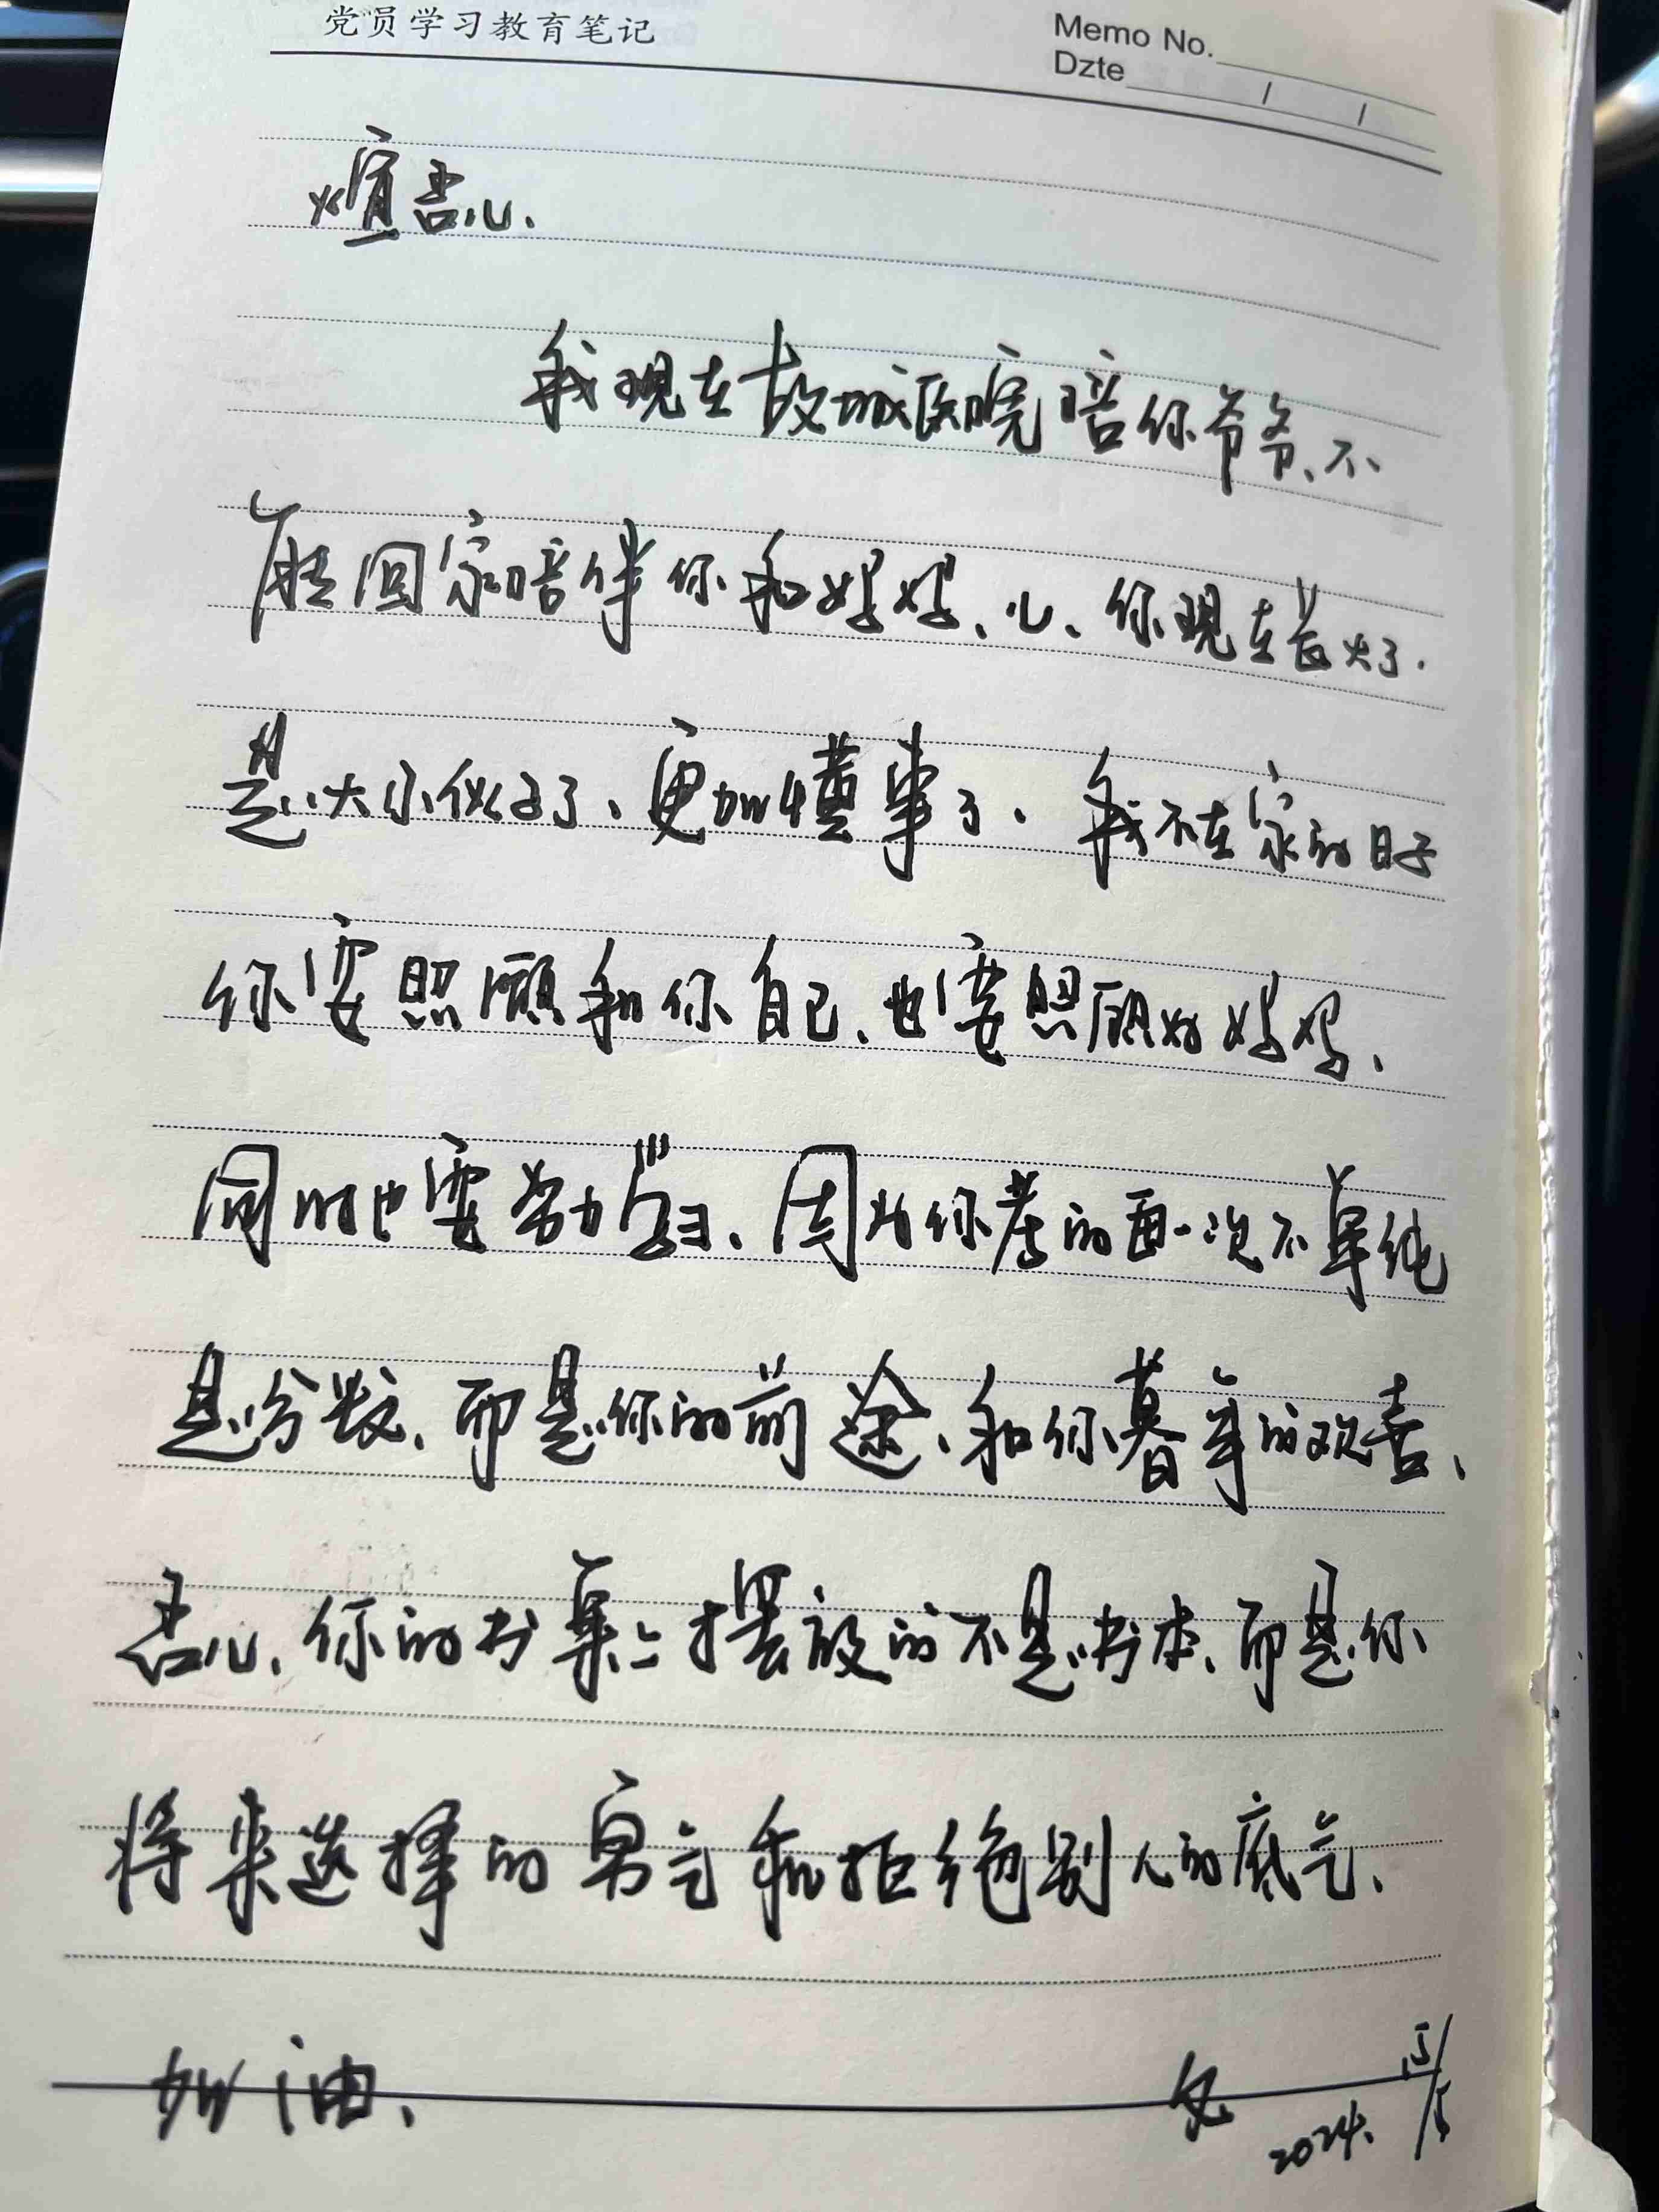 党员学习教育笔记
Memo No.
Dzte / /
吾儿.
我现在故城医院陪你爷爷、不
能回家陪伴你和妈妈、儿、你现在长大了.
是大小伙子了、更加懂事了. 我不在家的日子
你要照顾和你自己、也要照顾好妈妈、
同时也要努力学习、因为你考的每一次不单纯
是分数、而是你的前途、和你暮年的欢喜、
吾儿、你的书桌上摆放的不是书本、而是你
将来选择的勇气和拒绝别人的底气、
加油、
父 2024. 5/5